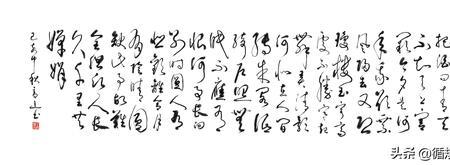 把酒问青天
不知天上宫
阙今夕是何
年我欲乘
风归去又恐
琼楼玉宇高
处不胜寒起
舞弄清影
何似在人间
转朱阁低
绮户照无
眠不应有
恨何事长向
别时圆人有
悲欢离合月
有阴晴圆
缺此事古难
全但愿人长
久千里共
婵娟
己亥年秋 书
头条 @循规